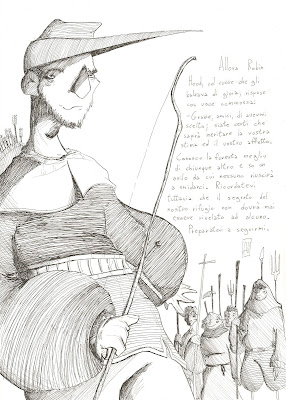 Allora Robin
Hood, col cuore che gli
balzava di gioia, rispose
con voce commossa:
-Grazie, amici, di avermi
scelto; siate certi che
saprò meritare la vostra
stima ed il vostro affetto.
Conosco la foresta meglio
di chiunque altro e so un
asilo da cui nessuno riuscirà
a snidarci. Ricordatevi
tuttavia che il segreto del
nostro rifugio non dovrà mai
essere rivelato ad alcuno.
Preparatevi a seguirmi.